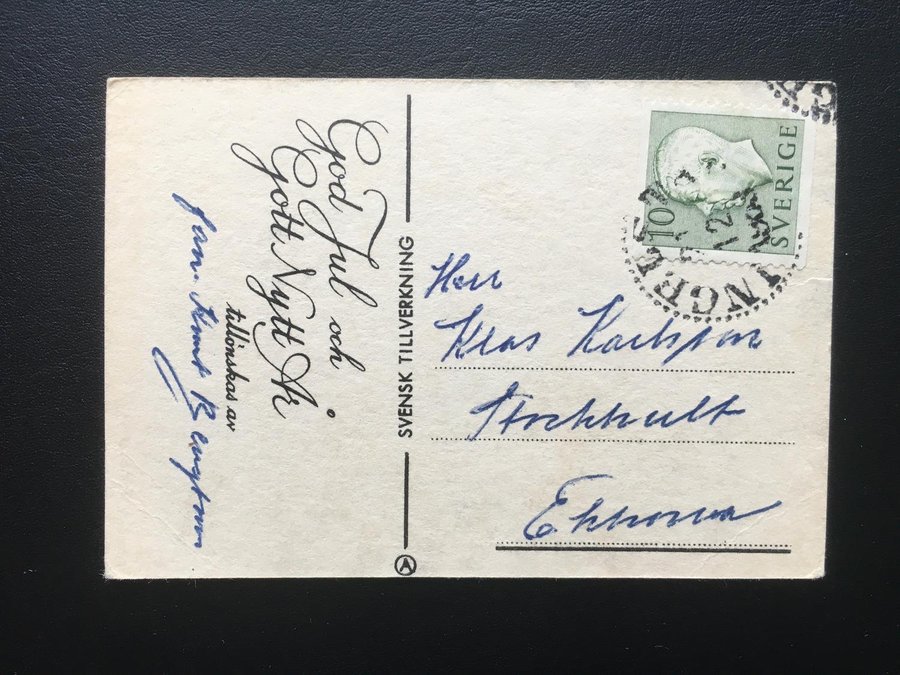 God Jul och
Gott Nytt År
tillönskas av
fam. Knut Bengtsson
SVENSK TILLVERKNING
A
10
SVERIGE
12
Herr
Klas Karlsson
Stockhult